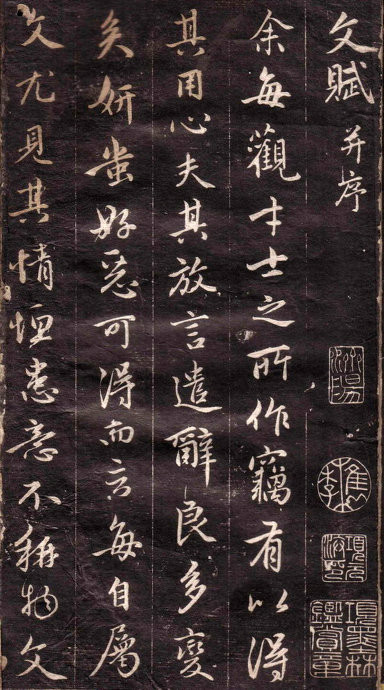 文賦 并序
余每觀才士之所作竊有以得
其用心夫其放言遣辭良多變
矣妍蚩好惡可得而言每自屬
文尤見其情恒患意不稱物文
項墨林鑑賞章